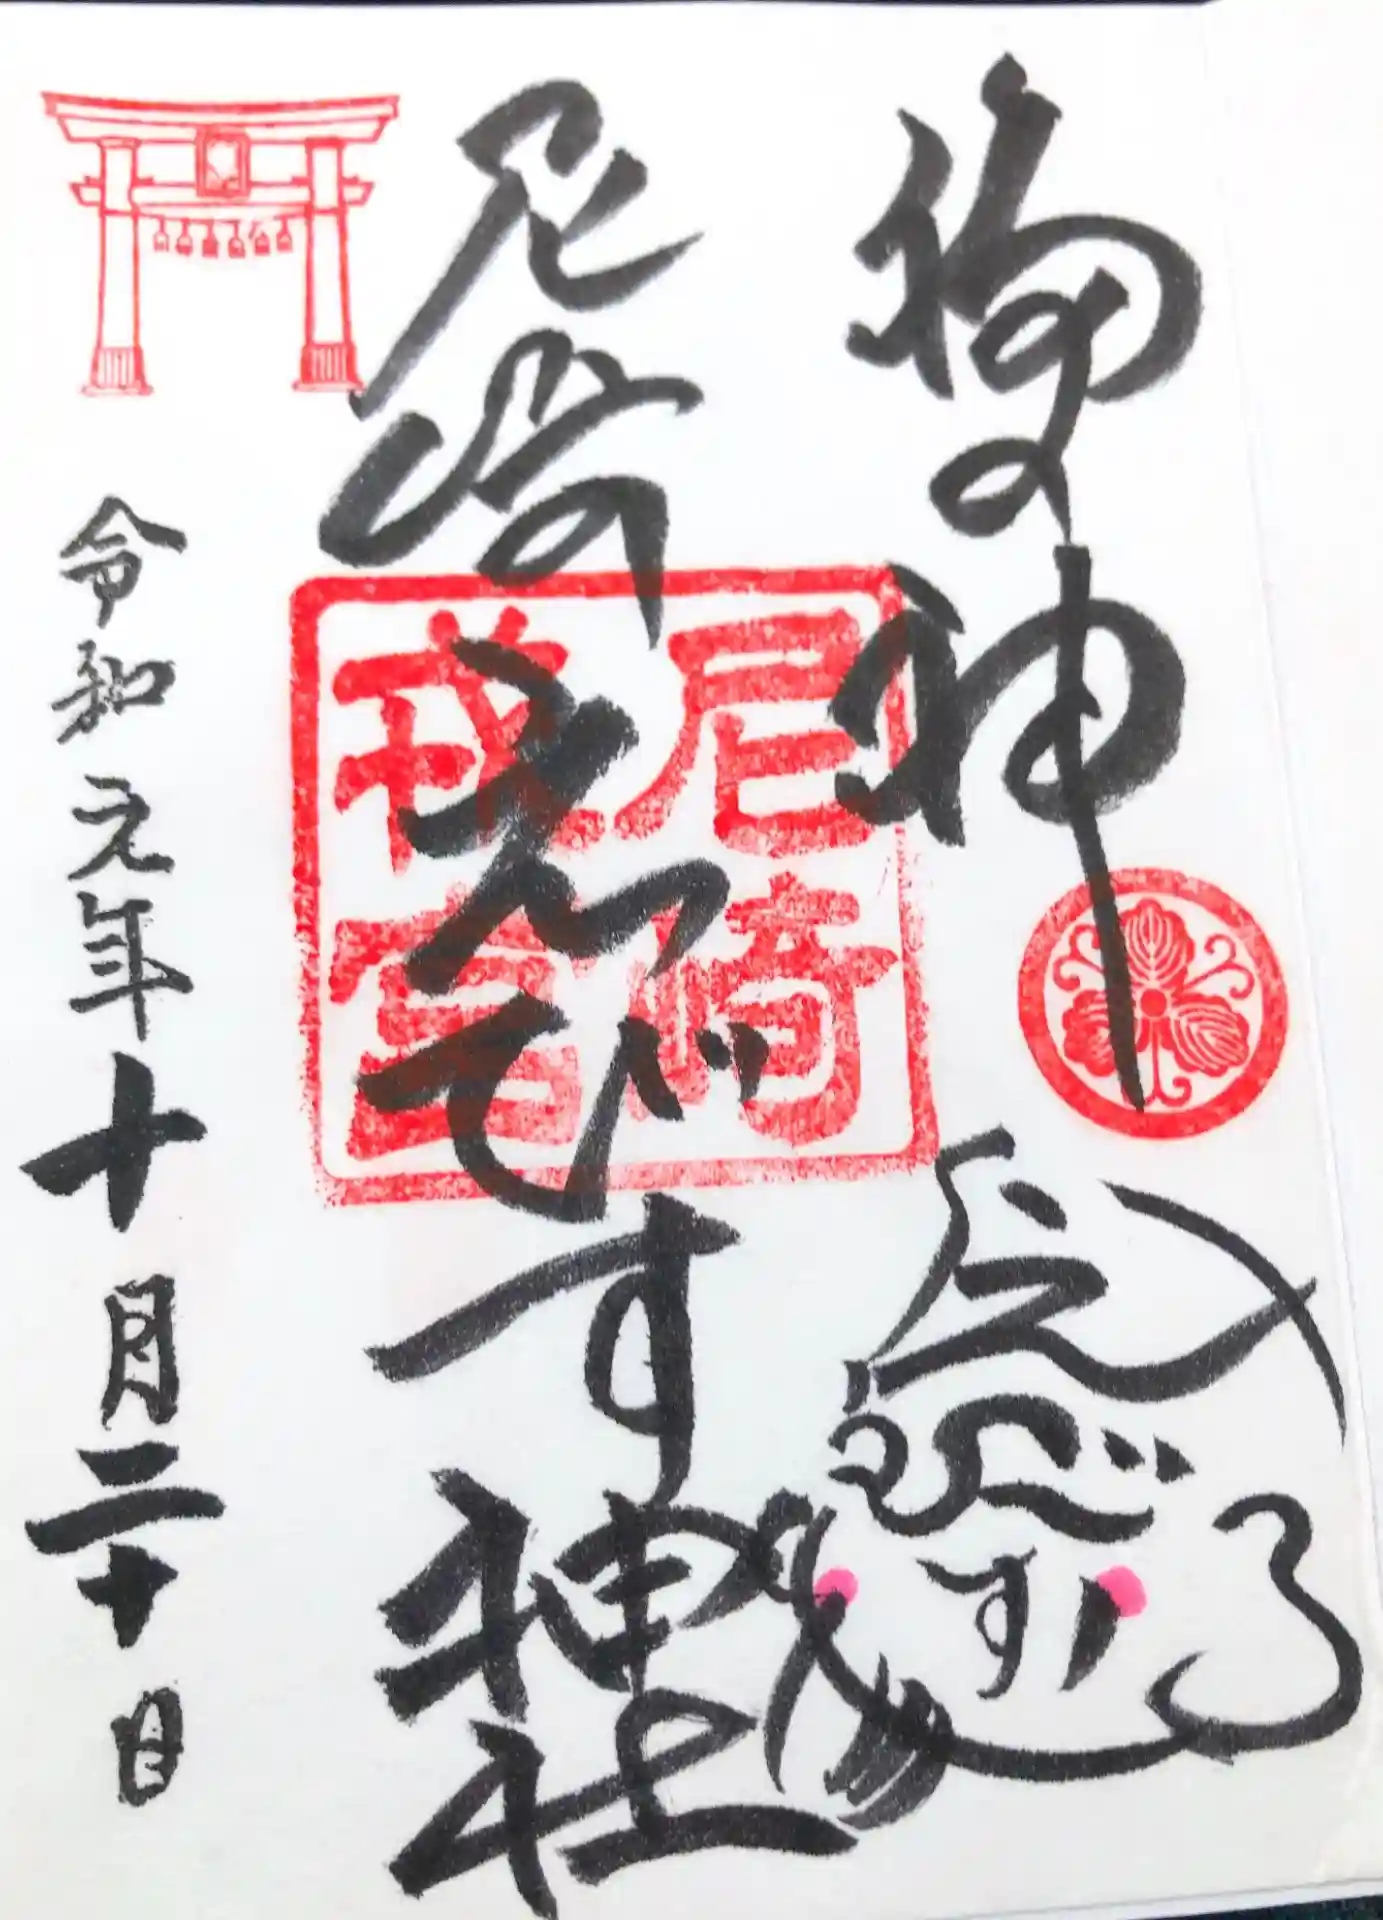 福の神
えびす
尼崎えびす神社
尼崎
戎宮
令和元年十月二十日